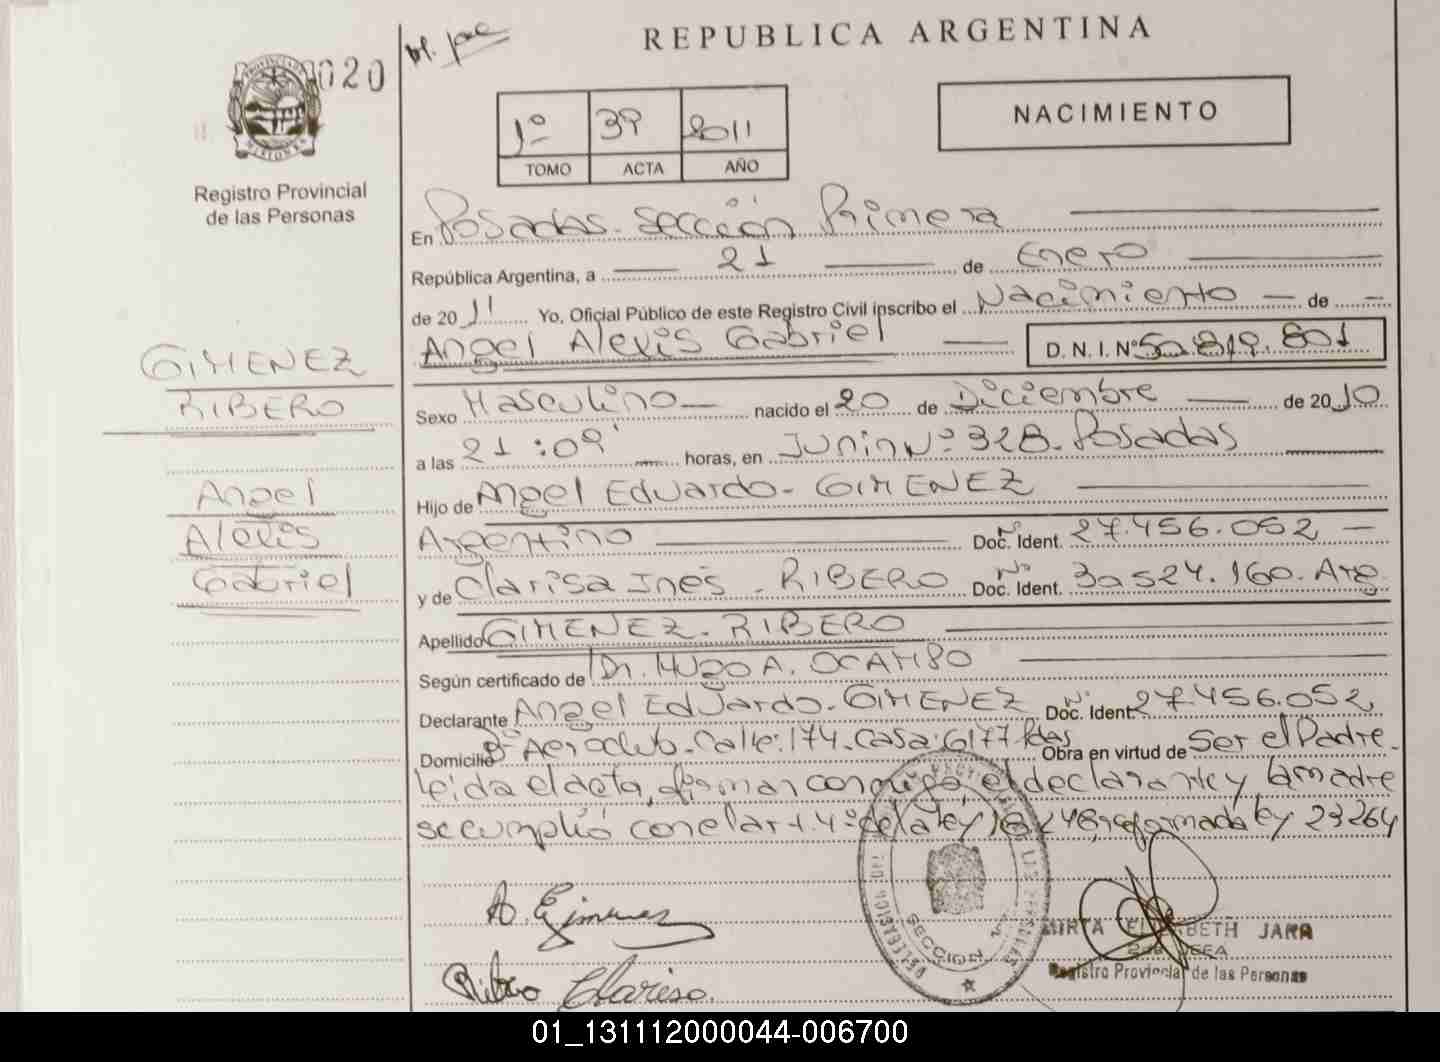 020
REPUBLICA ARGENTINA
PROVINCIA DE MISIONES
Registro Provincial
de las Personas
1º 39 2011
TOMO ACTA AÑO
NACIMIENTO
En Posadas. Sección Primera
República Argentina, a 21 de Enero
de 2011 Yo, Oficial Público de este Registro Civil inscribo el Nacimiento de
Angel Alexis Gabriel D.N.I. Nº 50.819.801
GIMENEZ
RIBERO
Angel
Alexis
Gabriel
Sexo Masculino nacido el 20 de Diciembre de 2010
a las 21:09' horas, en Junin Nº 328. Posadas
Hijo de Angel Eduardo - GIMENEZ
Argentino Doc. Ident. Nº 27.456.052
y de Clarisa Inés - RIBERO Doc. Ident. Nº 30524.160. Arg
Apellido GIMENEZ. RIBERO
Según certificado de Dr. HUGO A. OCAMPO
Declarante Angel Eduardo - GIMENEZ Doc. Ident. Nº 27.456.052
Domicilio Bº Aeroclub - Calle: 174 - Casa: 6177 Pdas Obra en virtud de Ser el Padre -
leida el acta, firman conmigo, el declarante y la madre
se cumplió con el art. 4º de la ley 18.248, reformada ley 23264
A. E. Gimenez
Ribero Clarisa.
DELEGACION
SECCION 1ª
MIRTA ELIZABETH JARA
Registro Provincial de las Personas
01_131112000044-006700